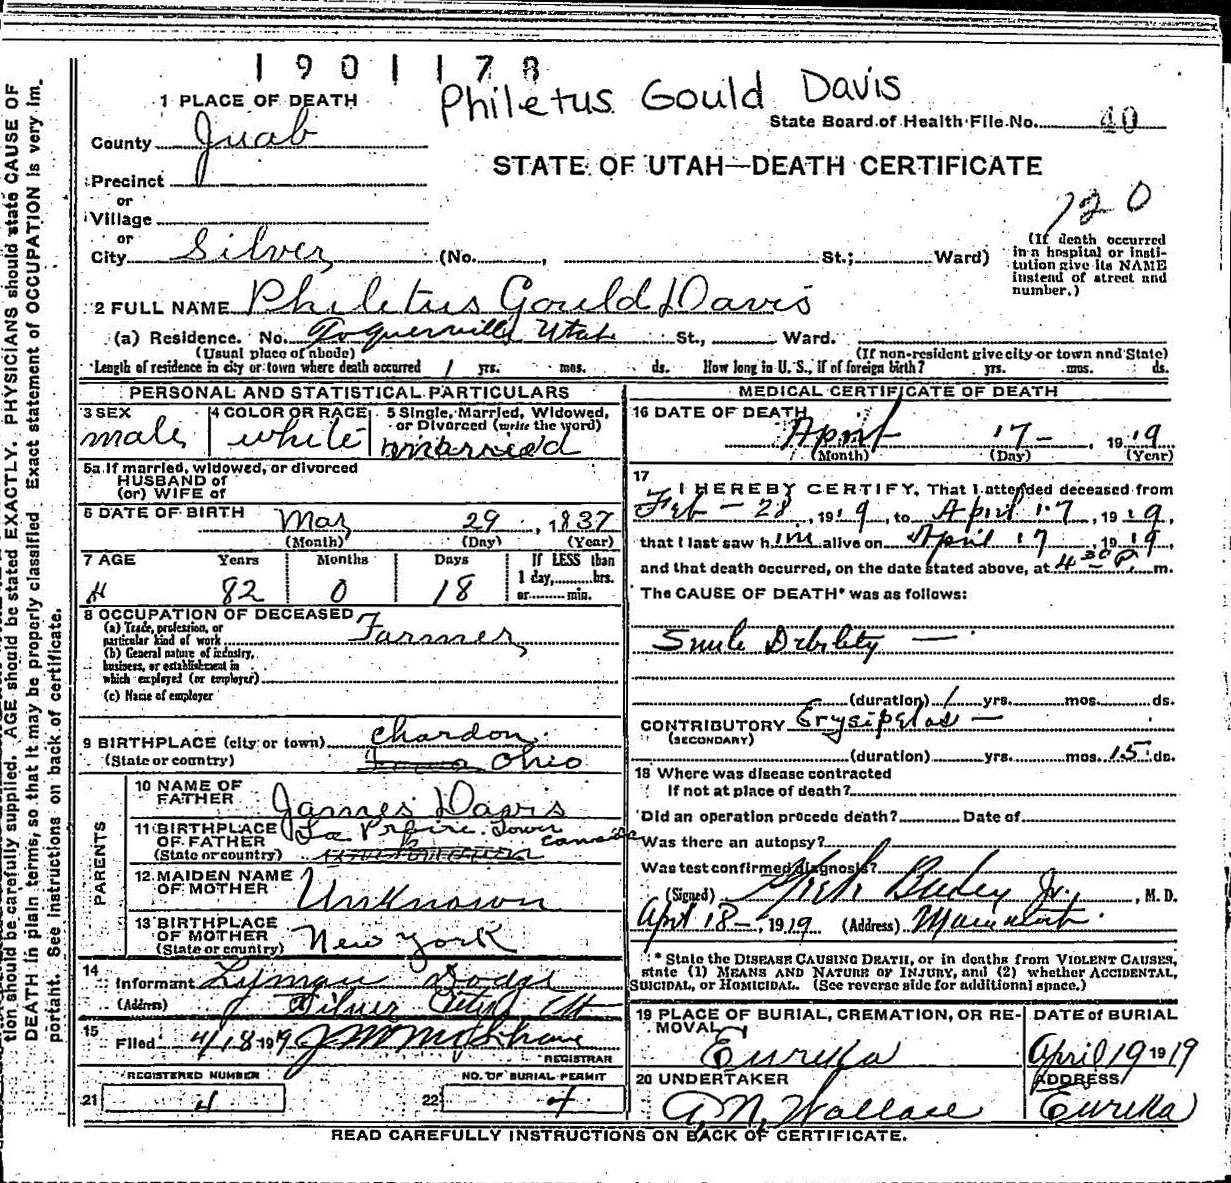 1901178
Philetus Gould Davis
1 PLACE OF DEATH
State Board of Health File No. 40
County Juab
STATE OF UTAH—DEATH CERTIFICATE
Precinct
or
Village
120
or
City Silver (No. , St.; Ward)
(If death occurred in a hospital or institution give its NAME instead of street and number.)
2 FULL NAME Philetus Gould Davis
(a) Residence. No. Toquerville Utah St., Ward.
(Usual place of abode) (If non-resident give city or town and State)
Length of residence in city or town where death occurred 1 yrs. mos. ds. How long in U. S., if of foreign birth? yrs. mos. ds.
PERSONAL AND STATISTICAL PARTICULARS
3 SEX 4 COLOR OR RACE 5 Single, Married, Widowed, or Divorced (write the word)
male white married
5a If married, widowed, or divorced
HUSBAND of
(or) WIFE of
6 DATE OF BIRTH Mar 29, 1837
(Month) (Day) (Year)
7 AGE Years Months Days If LESS than
1 day, hrs.
82 0 18 or min.
8 OCCUPATION OF DECEASED
(a) Trade, profession, or
particular kind of work Farmer
(b) General nature of industry,
business, or establishment in
which employed (or employer)
(c) Name of employer
9 BIRTHPLACE (city or town) Chardon
(State or country) Ohio
PARENTS
10 NAME OF FATHER James Davis
11 BIRTHPLACE OF FATHER La Prairie Canada
(State or country)
12 MAIDEN NAME OF MOTHER Unknown
13 BIRTHPLACE OF MOTHER New York
(State or country)
14 Informant Lyman Dodge
(Address) Silver City Ut
15 Filed 4/18 1919
REGISTRAR
REGISTERED NUMBER NO. OF BURIAL PERMIT
21 4 22 4
MEDICAL CERTIFICATE OF DEATH
16 DATE OF DEATH
April 17 - , 1919
(Month) (Day) (Year)
17 I HEREBY CERTIFY, That I attended deceased from
Feb - 28, 1919, to April 17, 1919,
that I last saw him alive on April 17, 1919,
and that death occurred, on the date stated above, at 4 30 P. m.
The CAUSE OF DEATH* was as follows:
Senile Debility —
(duration) 1 yrs. mos. ds.
CONTRIBUTORY Erysipelas —
(SECONDARY)
(duration) yrs. mos. 15 ds.
18 Where was disease contracted
If not at place of death?
Did an operation procede death? Date of
Was there an autopsy?
Was test confirmed diagnosis?
(Signed) Bailey Jr. , M. D.
April 18 -, 1919 (Address) Mammoth
* State the DISEASE CAUSING DEATH, or in deaths from VIOLENT CAUSES,
state (1) MEANS AND NATURE OF INJURY, and (2) whether ACCIDENTAL,
SUICIDAL, or HOMICIDAL. (See reverse side for additional space.)
19 PLACE OF BURIAL, CREMATION, OR REMOVAL DATE of BURIAL
Eureka April 19 1919
20 UNDERTAKER ADDRESS
A. N. Wallace Eureka
READ CAREFULLY INSTRUCTIONS ON BACK OF CERTIFICATE.
tion should be carefully supplied. AGE should be stated EXACTLY. PHYSICIANS should state CAUSE OF
DEATH in plain terms, so that it may be properly classified. Exact statement of OCCUPATION is very im-
portant. See instructions on back of certificate.